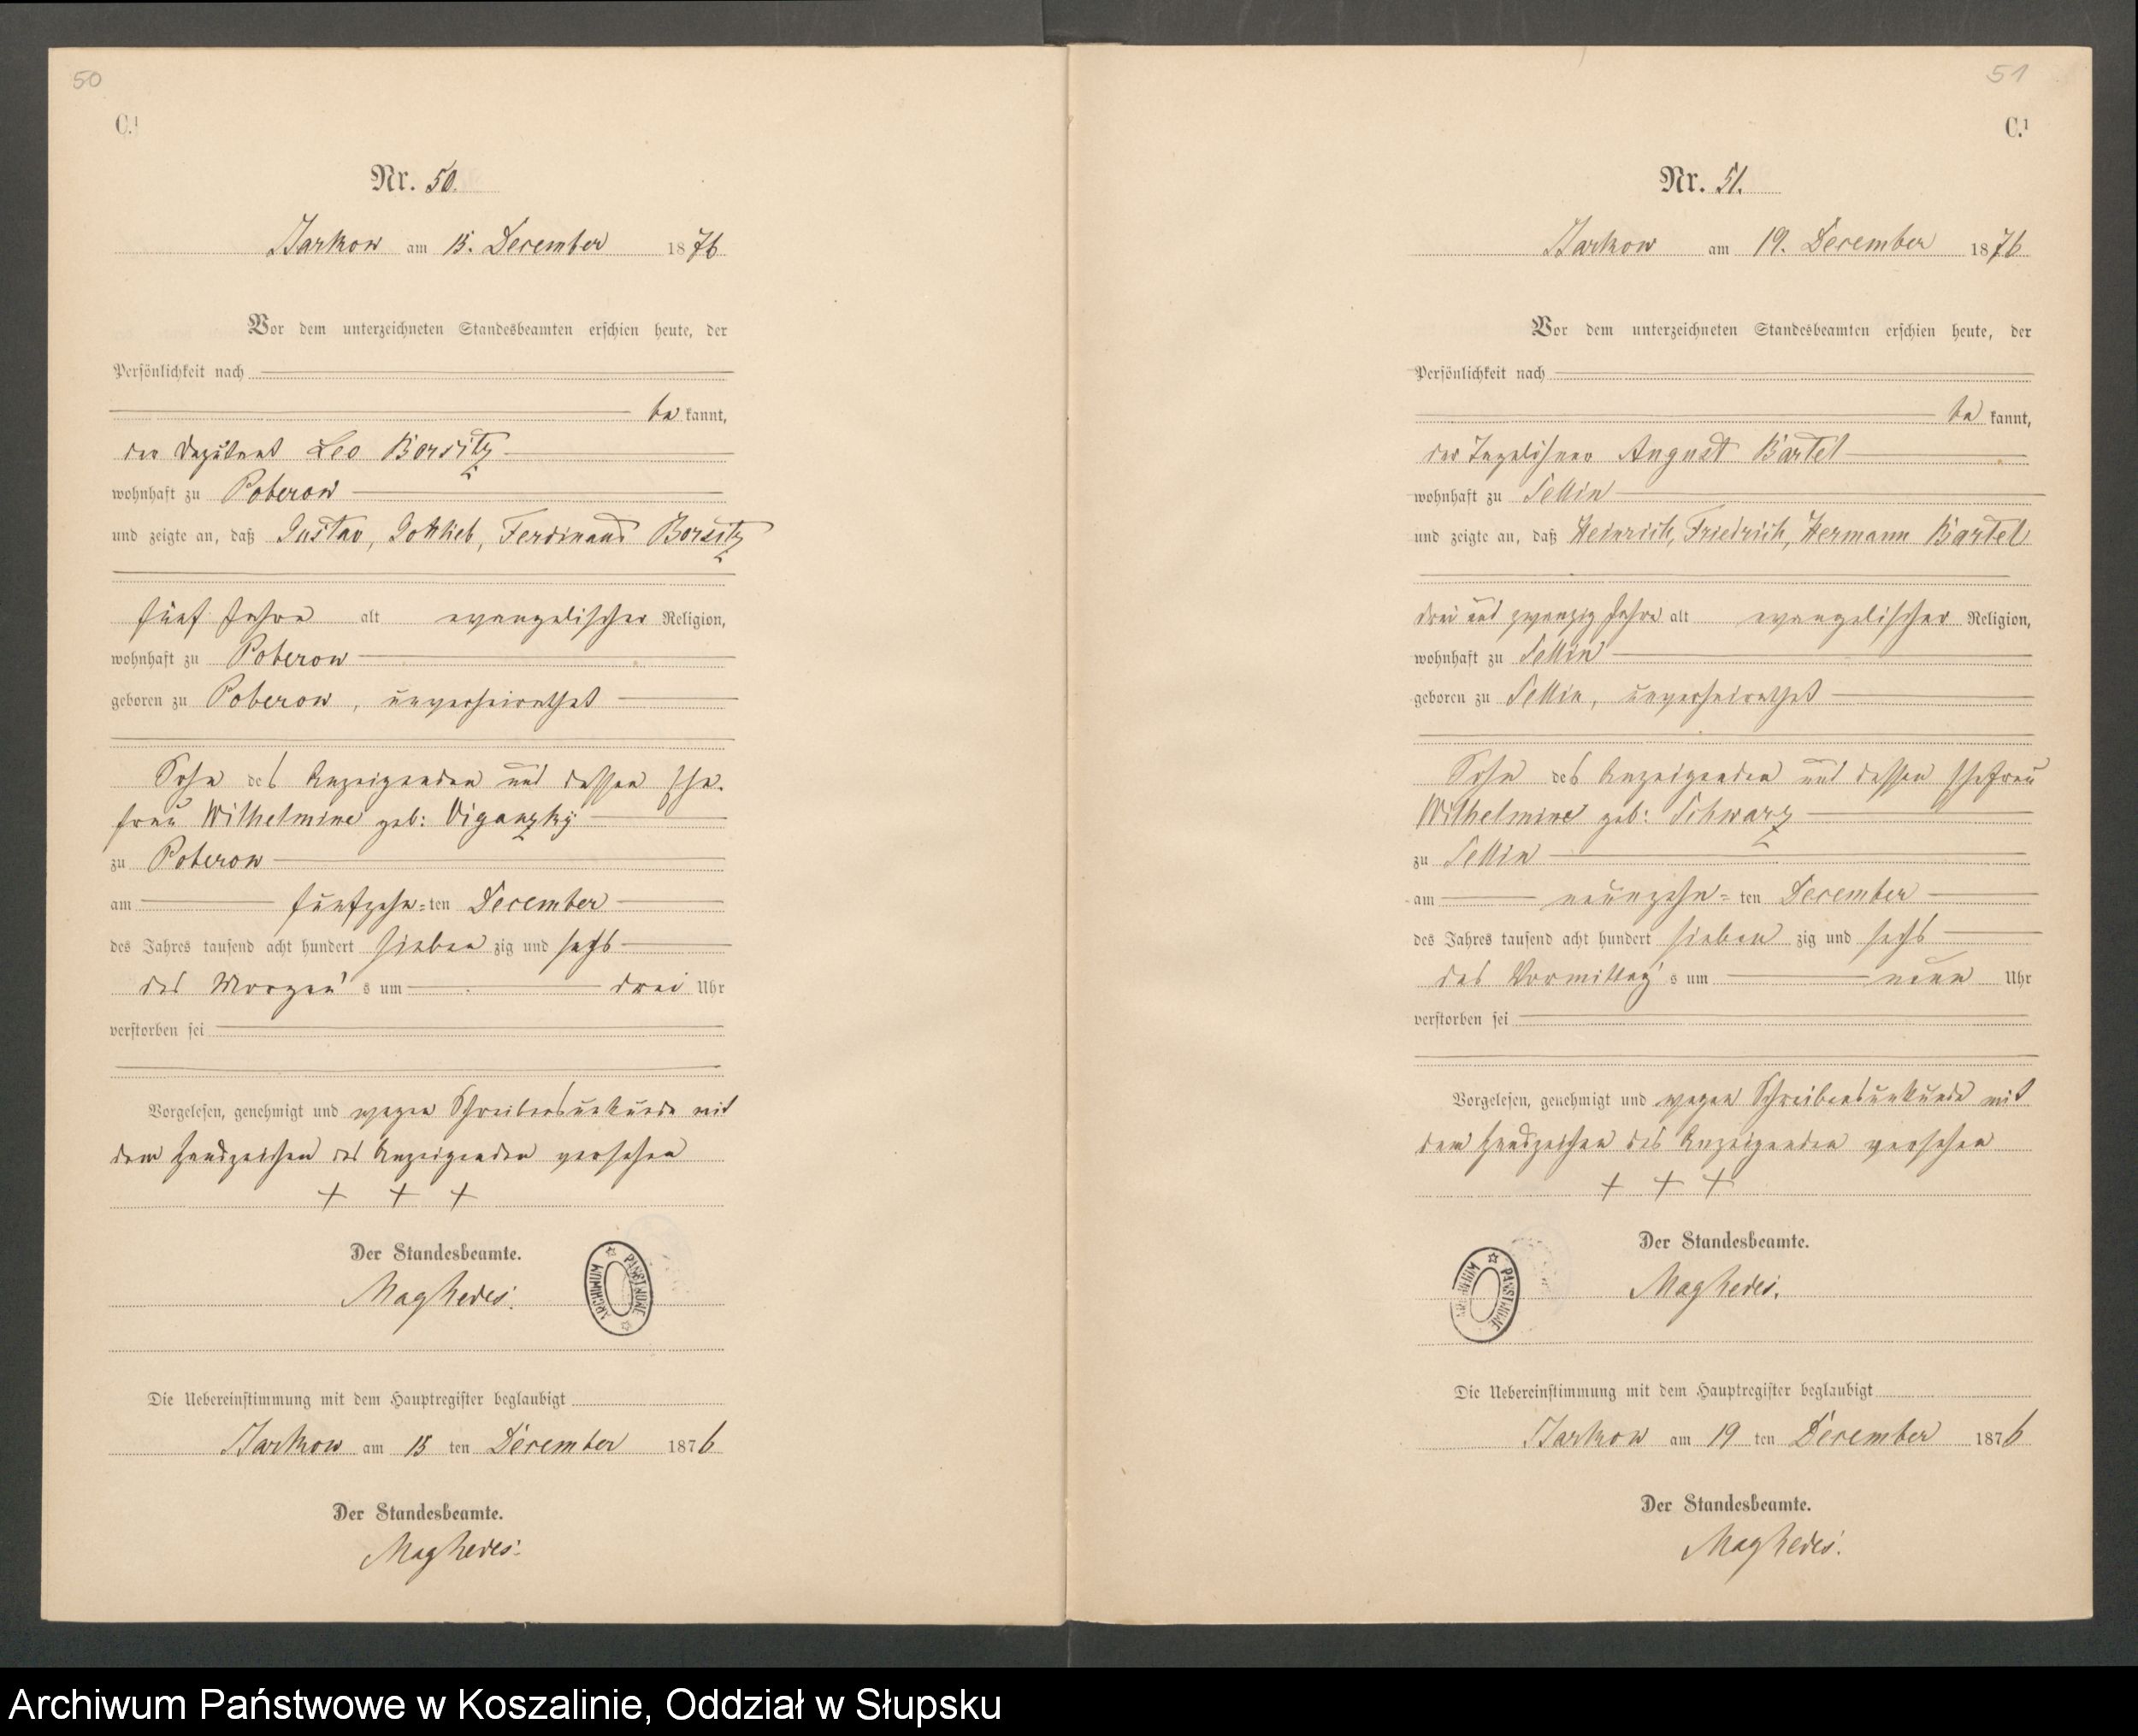 50
C.¹
Nr. 50.
Barkow am 15. December 1876
Vor dem unterzeichneten Standesbeamten erschien heute, der
Persönlichkeit nach
be kannt,
der Deputant Leo Borsitz
wohnhaft zu Poberow
und zeigte an, daß Gustav, Gottlieb, Ferdinand Borsitz
fünf Jahre alt evangelischer Religion,
wohnhaft zu Poberow
geboren zu Poberow, unverheirathet
Sohn des Anzeigenden und dessen Ehe-
frau Wilhelmine geb: Viganzky
zu Poberow
am fünfzehn-ten December
des Jahres tausend acht hundert sieben zig und sechs
des Morgen's um drei Uhr
verstorben sei
Vorgelesen, genehmigt und wegen Schreibensunkunde mit
dem Handzeichen des Anzeigenden versehen
+ + +
Der Standesbeamte.
ARCHIWUM PAŃSTWOWE
Die Uebereinstimmung mit dem Hauptregister beglaubigt
Barkow am 15 ten December 1876
Der Standesbeamte.
51
C.¹
Nr. 51.
Barkow am 19. December 1876
Vor dem unterzeichneten Standesbeamten erschien heute, der
Persönlichkeit nach
be kannt,
der Tagelöhner August Bartel
wohnhaft zu Sellin
und zeigte an, daß Heinrich, Friedrich, Hermann Bartel
drei und zwanzig Jahre alt evangelischer Religion,
wohnhaft zu Sellin
geboren zu Sellin, unverheirathet
Sohn des Anzeigenden und dessen Ehefrau
Wilhelmine geb: Schwarz
zu Sellin
am neunzehn-ten December
des Jahres tausend acht hundert sieben zig und sechs
des Vormittag's um neun Uhr
verstorben sei
Vorgelesen, genehmigt und wegen Schreibensunkunde mit
dem Handzeichen des Anzeigenden versehen
+ + +
Der Standesbeamte.
ARCHIWUM PAŃSTWOWE
Die Uebereinstimmung mit dem Hauptregister beglaubigt
Barkow am 19 ten December 1876
Der Standesbeamte.
Archiwum Państwowe w Koszalinie, Oddział w Słupsku